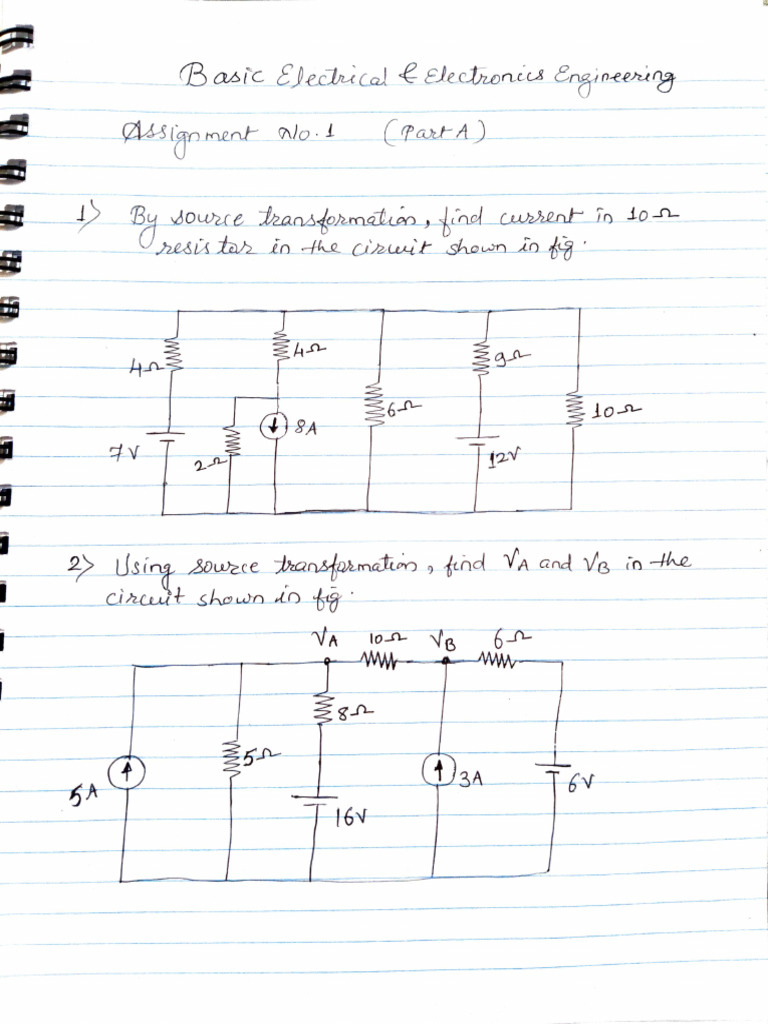 Basic Electrical & Electronics Engineering
Assignment No. 1 (Part A)
1) By source transformation, find current in 10Ω
resistor in the circuit shown in fig.
4Ω
4Ω
9Ω
6Ω
10Ω
8A
7V
2Ω
12V
2) Using source transformation, find VA and VB in the
circuit shown in fig.
VA 10Ω VB 6Ω
8Ω
5Ω
5A
3A
6V
16V